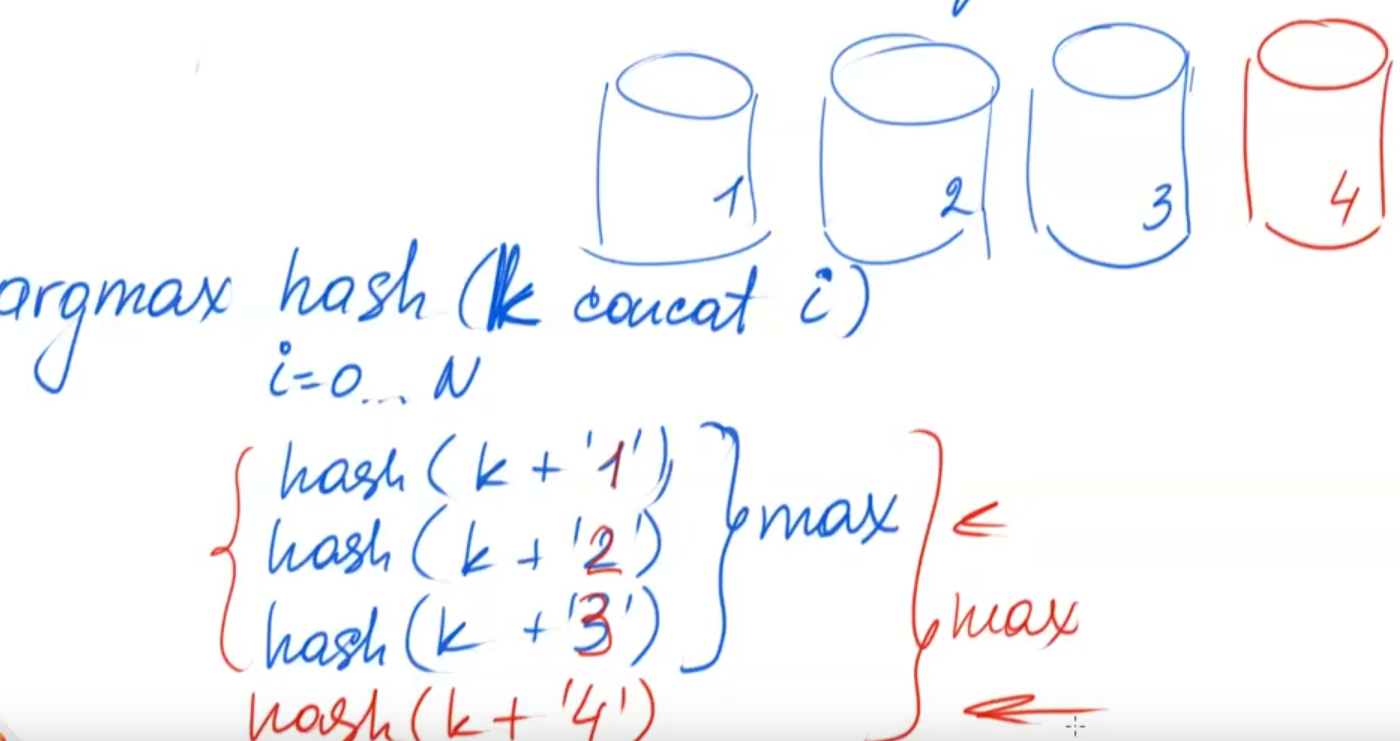 1 2 3 4
argmax hash (k concat i)
i=0... N
hash ( k + '1')
hash ( k + '2') max
hash ( k + '3')
max
hash ( k + '4')